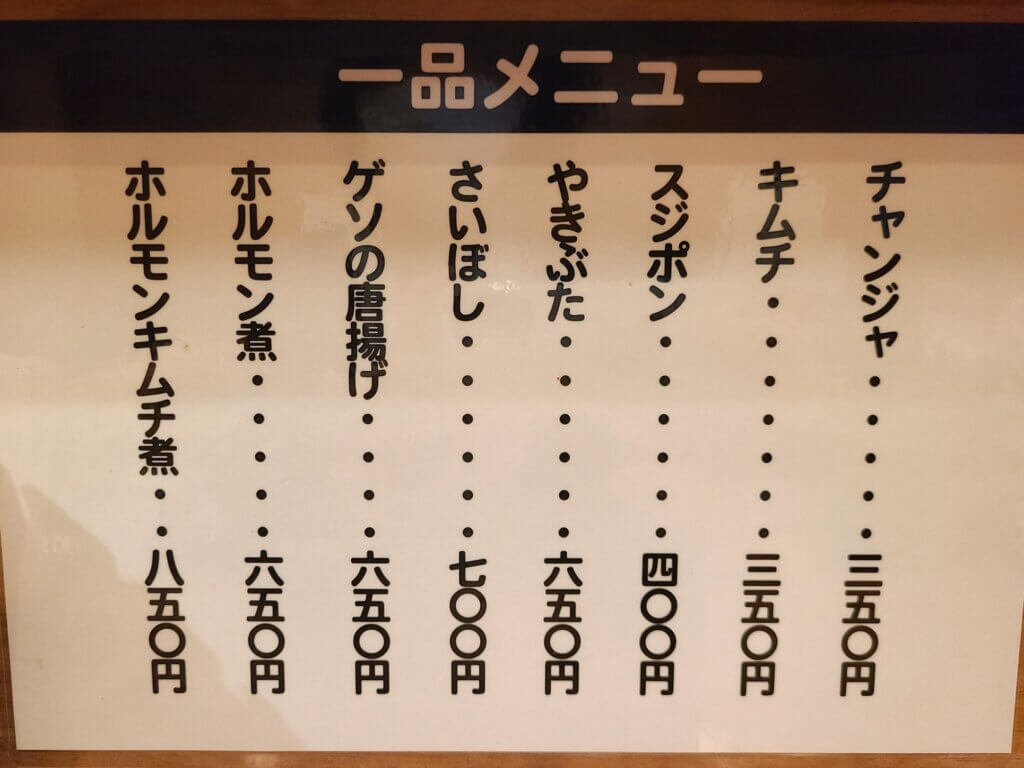 一品メニュー
チャンジャ・・・・・三五〇円
キムチ・・・・・・・三五〇円
スジポン・・・・・・四〇〇円
やきぶた・・・・・・六五〇円
さいぼし・・・・・・七〇〇円
ゲソの唐揚げ・・・・六五〇円
ホルモン煮・・・・・六五〇円
ホルモンキムチ煮・・八五〇円